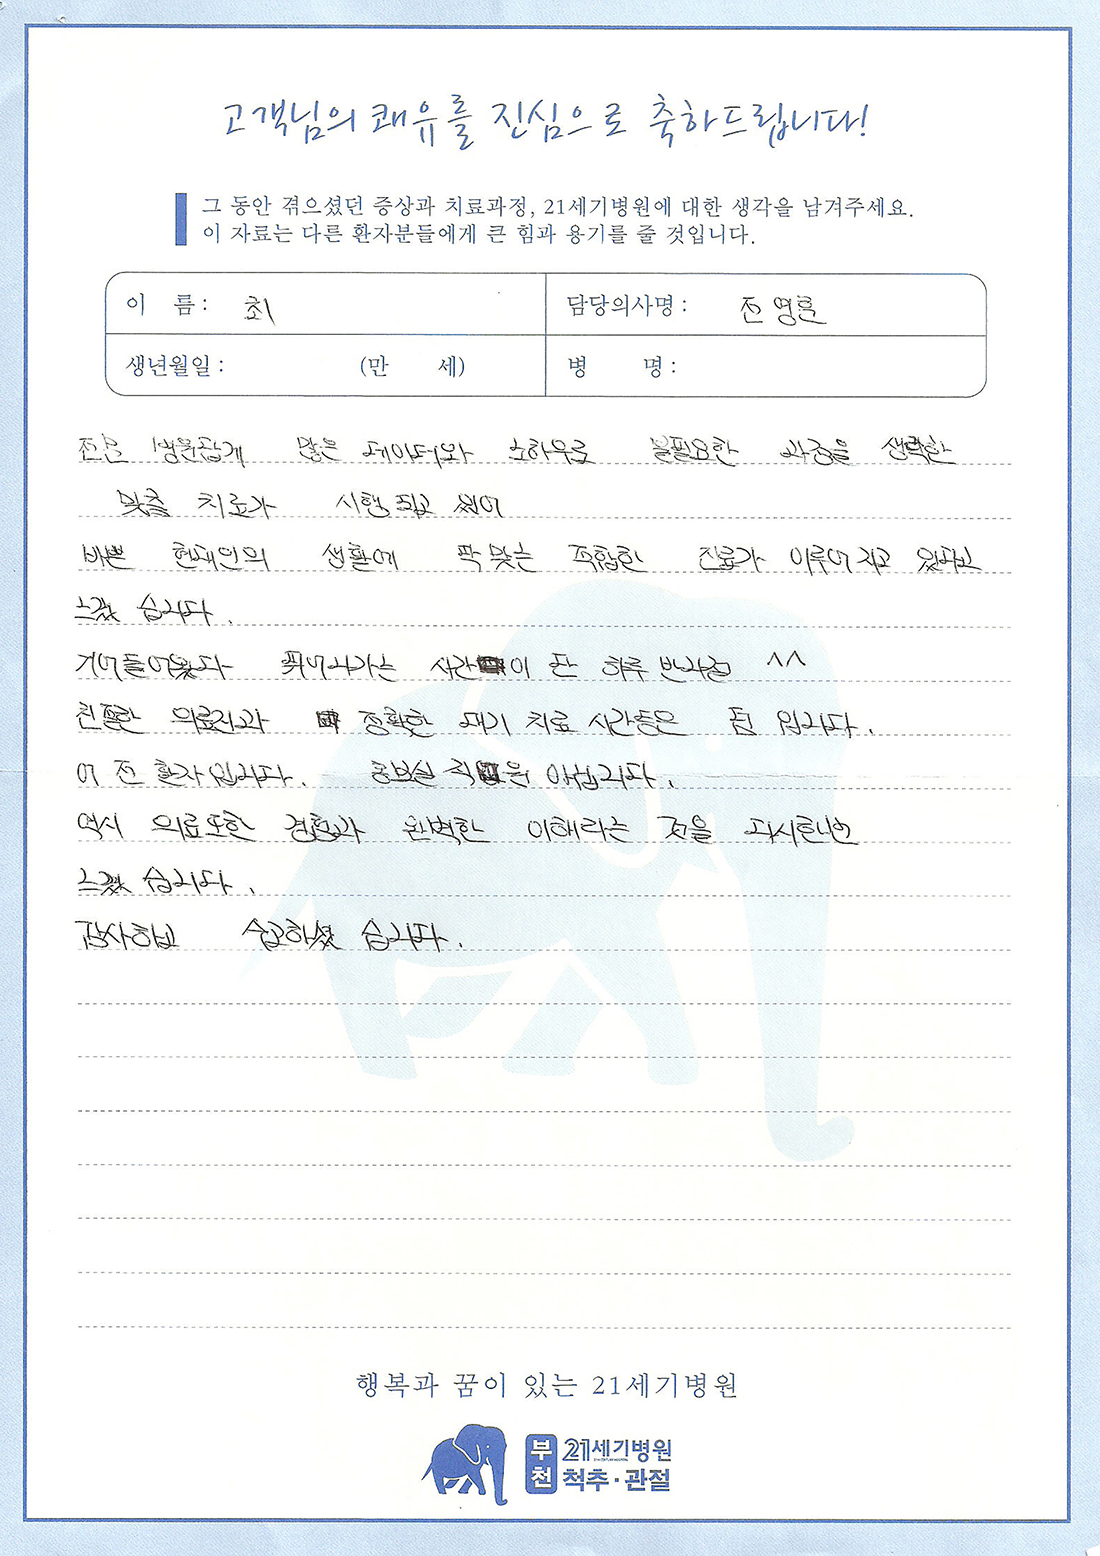 고객님의 쾌유를 진심으로 축하드립니다!
그 동안 겪으셨던 증상과 치료과정, 21세기병원에 대한 생각을 남겨주세요.
이 자료는 다른 환자분들에게 큰 힘과 용기를 줄 것입니다.
이 름 : 최
담당의사명 : 전영훈
생년월일 : (만 세)
병 명 :
전문 병원답게 많은 데이터와 노하우로 불필요한 과정을 생략한
맞춤 치료가 시행되고 있어
바쁜 현대인의 생활에 딱맞는 적합한 진료가 이루어지고 있다고
느꼈습니다.
기어들어왔다 뛰어나가는 시간이 단 하루 반나절 ^^
친절한 의료진과 정확한 대기 치료 시간등은 덤 입니다.
이 전 환자입니다. 홍보실 직원은 아닙니다.
역시 의료또한 경험과 완벽한 이해라는 것을 다시한번
느꼈습니다.
감사하고 수고하셨습니다.
행복과 꿈이 있는 21세기병원
부천 21세기병원
척추·관절